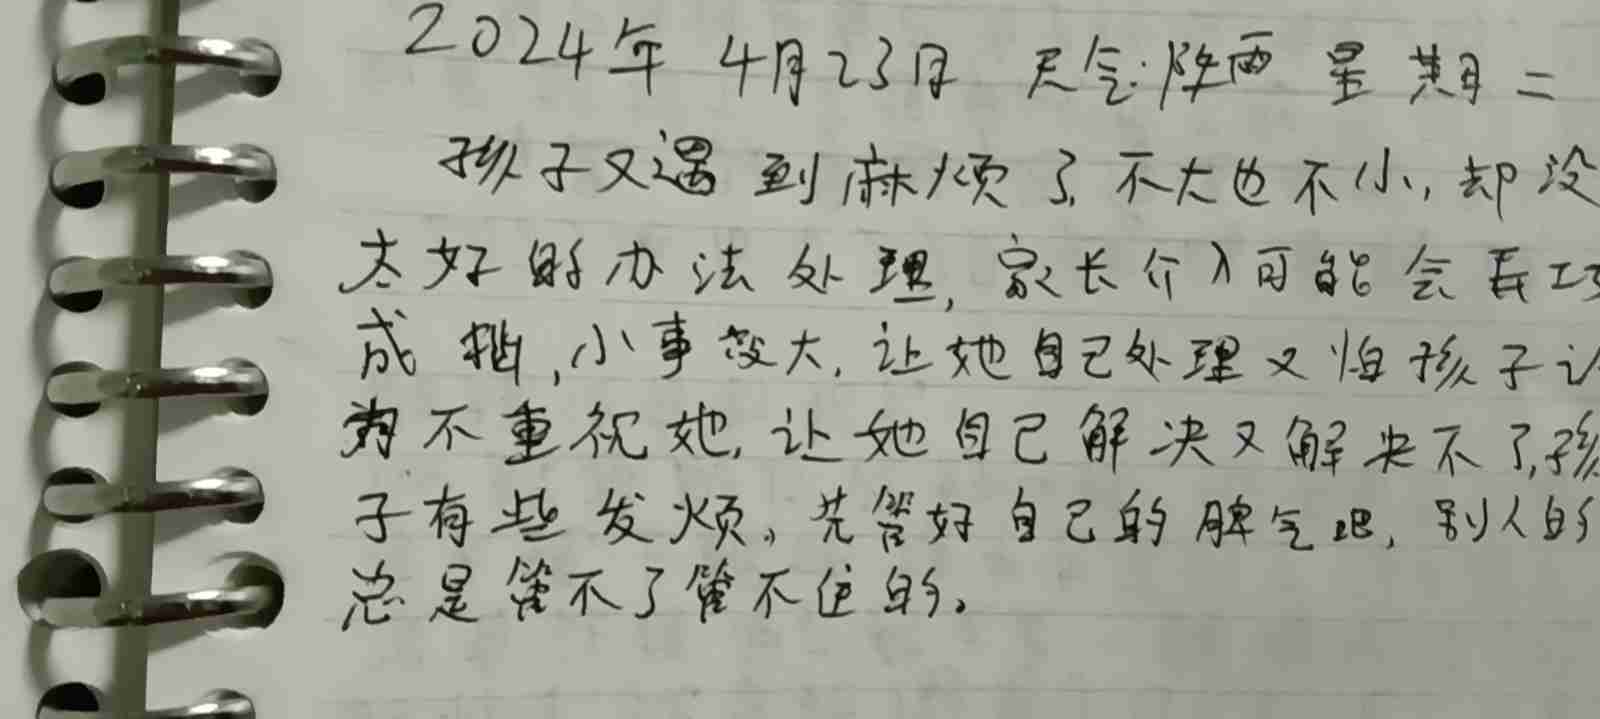 2024年 4月23日 天气:阵雨 星期二
孩子又遇到麻烦了,不大也不小,却没
太好的办法处理,家长介入可能会弄巧
成拙,小事变大,让她自己处理又怕孩子认
为不重视她,让她自己解决又解决不了,孩
子有些发烦。先管好自己的脾气吧,别人的
总是管不了管不住的。